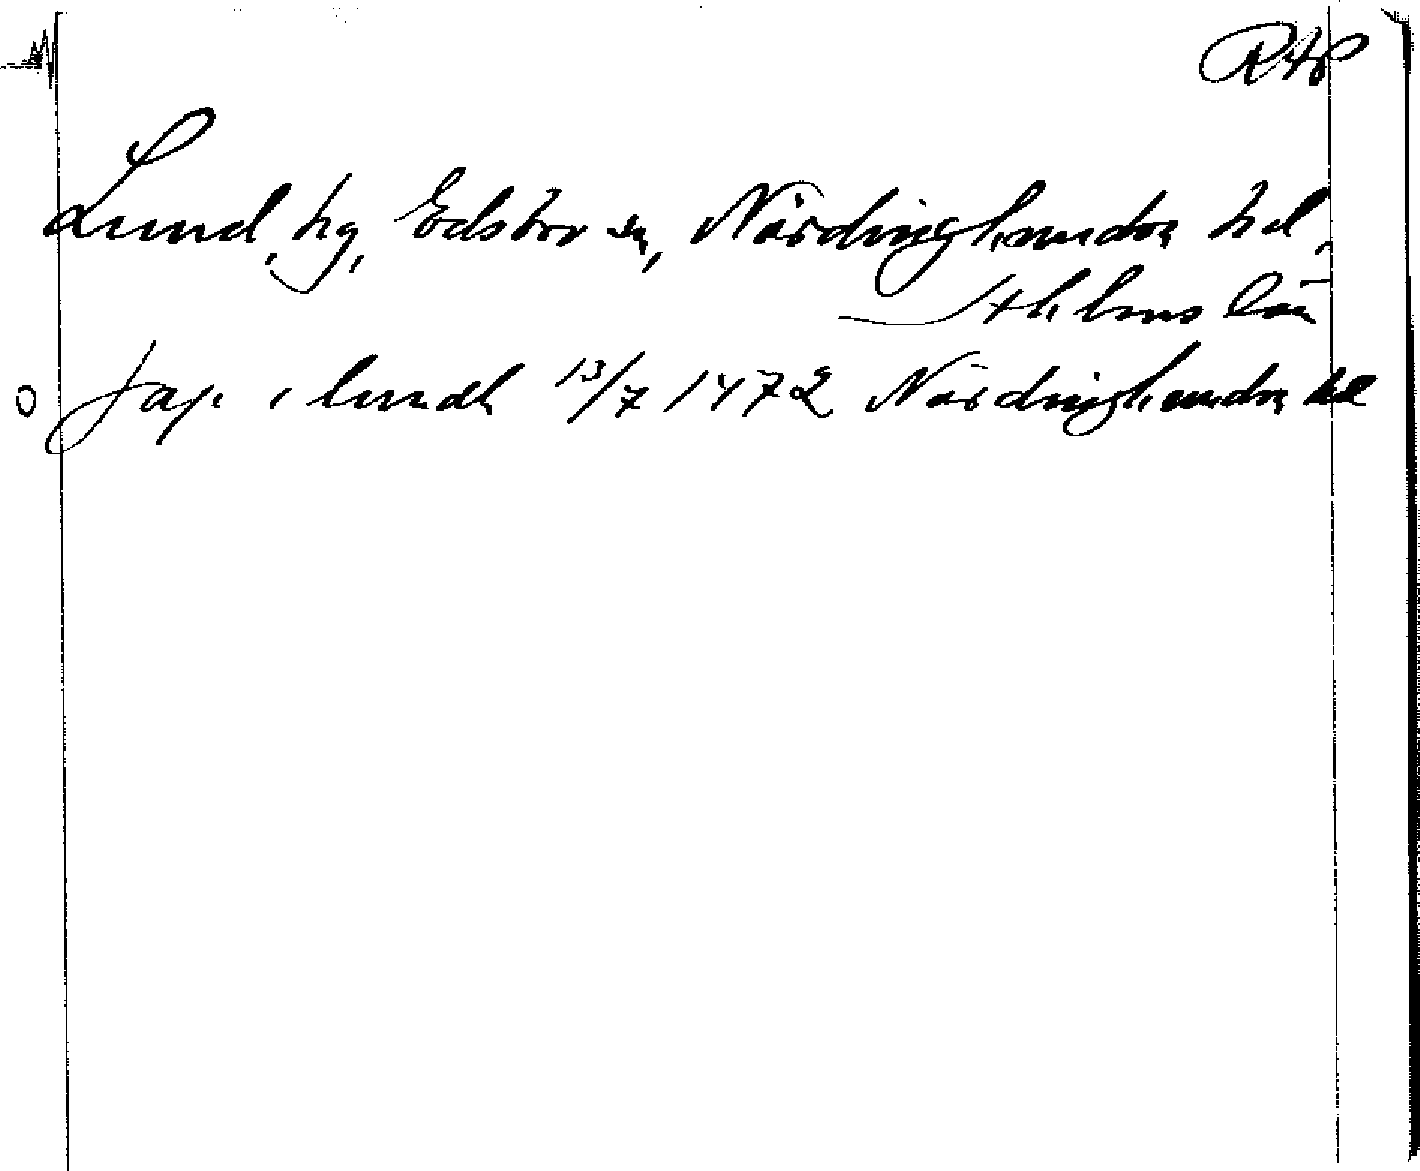 Lund, hg, Edsbro sn, Närdinghundra hd,
Sthlms län
jap i lundh 13/7 1472 Närdinghundra hd